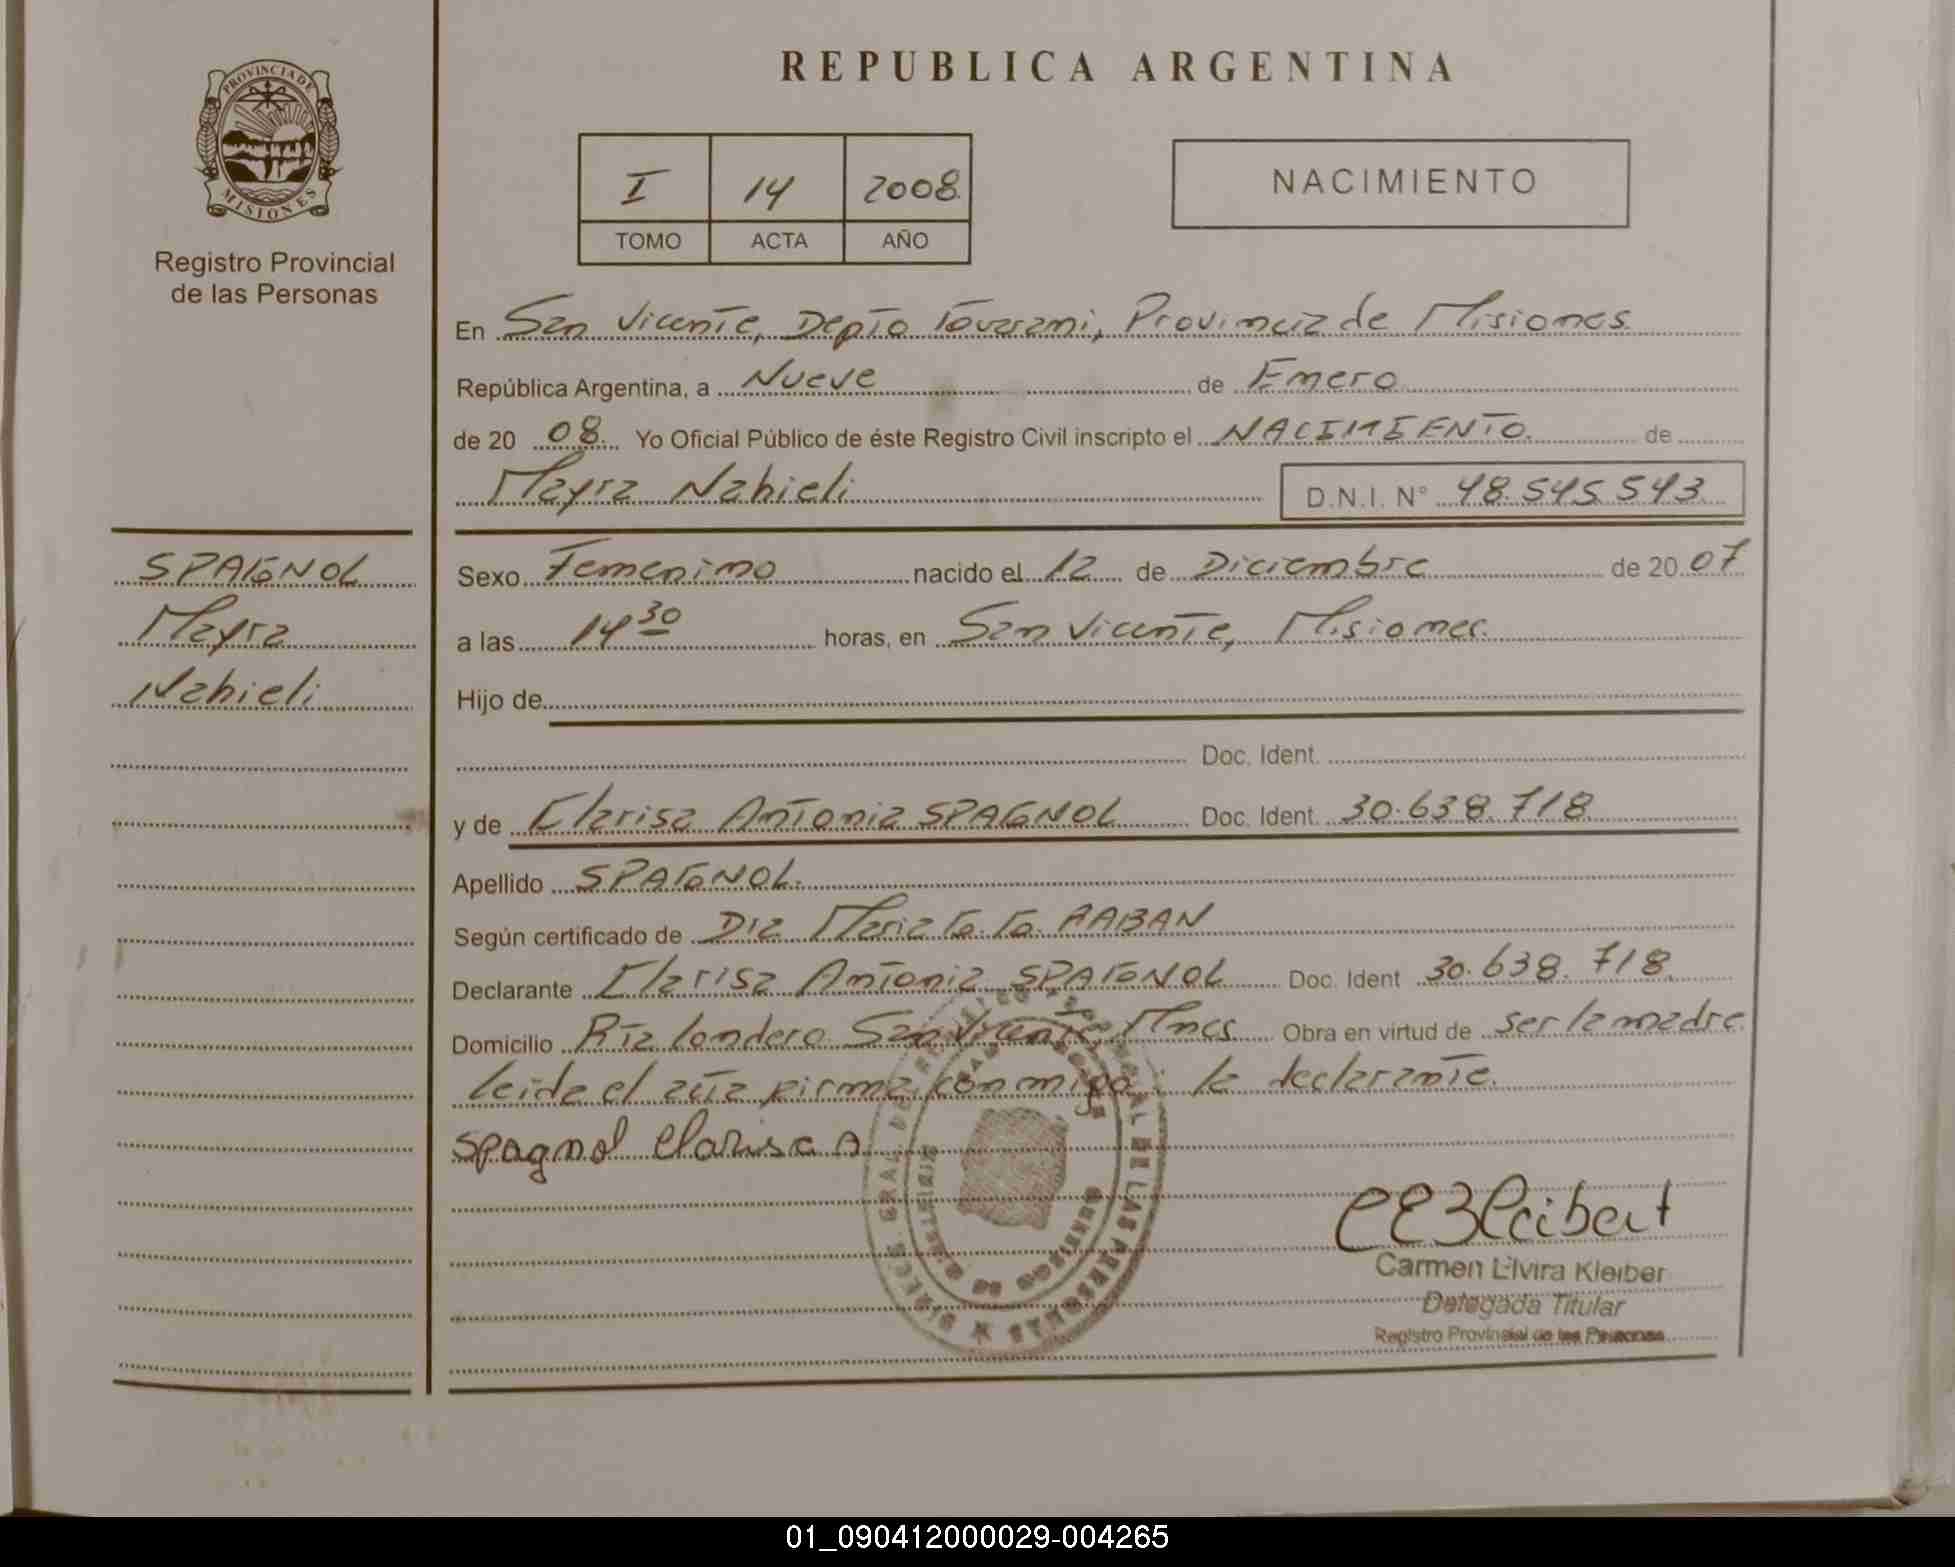 REPUBLICA ARGENTINA
PROVINCIA DE
MISIONES
Registro Provincial
de las Personas
I 14 2008
TOMO ACTA AÑO
NACIMIENTO
En San Vicente, Depto Guarani, Provincia de Misiones
República Argentina, a Nueve de Enero
de 20 08. Yo Oficial Público de éste Registro Civil inscripto el NACIMIENTO. de
Mayra Nahieli D.N.I. N° 48.545.543
SPAGNOL
Mayra
Nahieli
Sexo Femenino nacido el 12 de Diciembre de 20 07
a las 14 30 horas, en San Vicente, Misiones.
Hijo de
Doc. Ident.
y de Clarisa Antonia SPAGNOL Doc. Ident. 30.638.718
Apellido SPAGNOL.
Según certificado de Dra Maria G. G. RABAN
Declarante Clarisa Antonia SPAGNOL Doc. Ident 30.638.718
Domicilio San Vicente, Mnes Obra en virtud de ser la madre
leida el acta firma conmigo: la declarante.
Spagnol Clarisa A
DE LAS PERSONAS
CEKleibert
Carmen Elvira Kleiber
Delegada Titular
Registro Provincial de las Personas
01_090412000029-004265